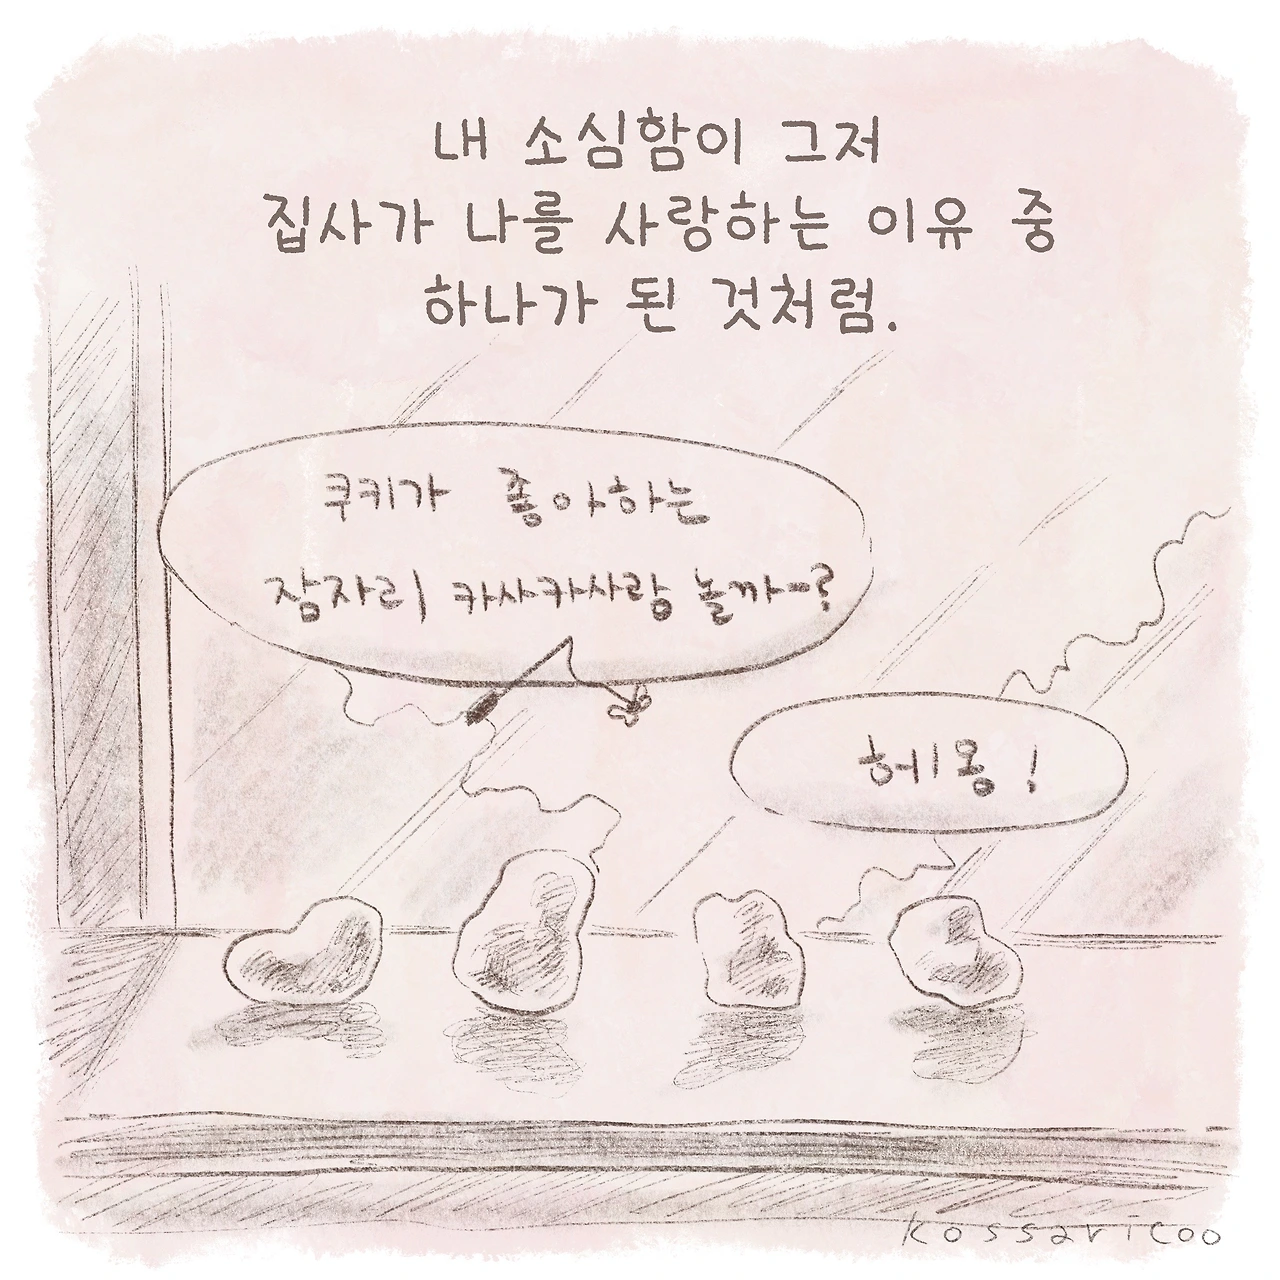 내 소심함이 그저
집사가 나를 사랑하는 이유 중
하나가 된 것처럼.
쿠키가 좋아하는
잠자리 카사카사랑 놀까~?
헤옹!
kossaricoo